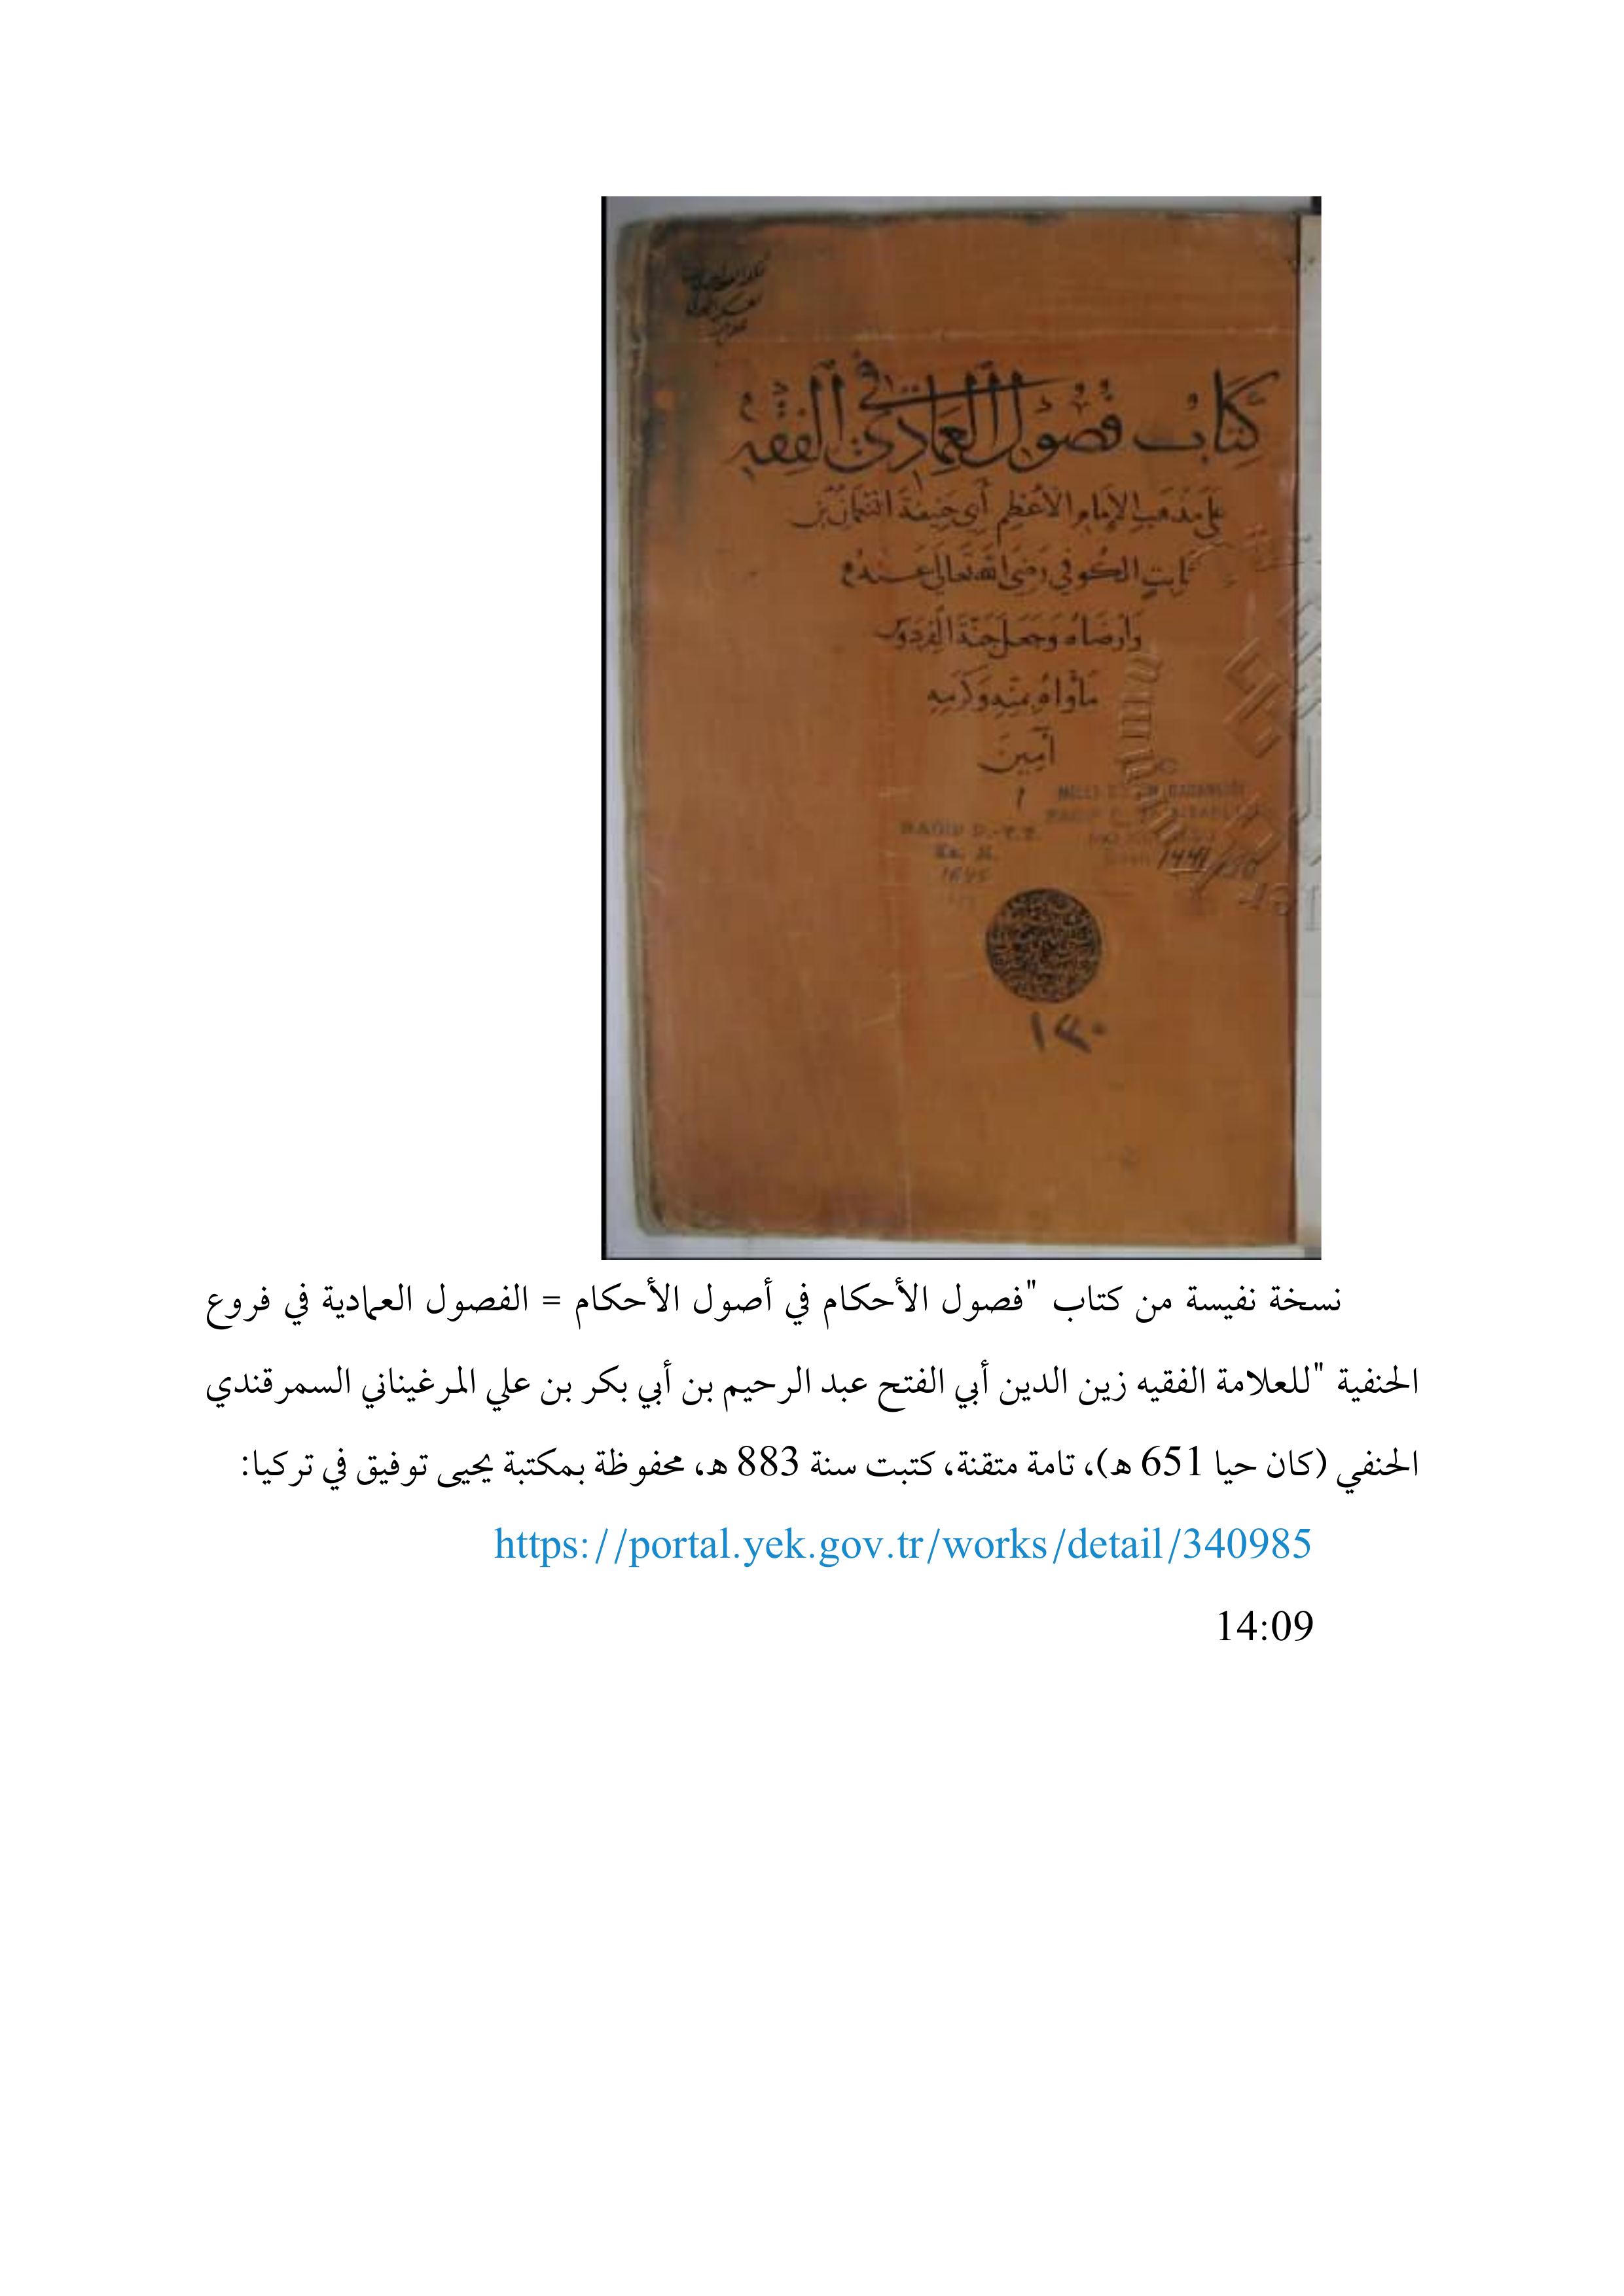 كِتَابُ فُصُولِ العِمَادِي فِي الفِقْهِ
عَلَى مَذْهَبِ الإِمَامِ الأَعْظَمِ أَبِي حَنِيفَةَ النُّعْمَانِ بْنِ
ثَابِتٍ الكُوفِي رَضِيَ اللهُ تَعَالَى عَنْهُ
وَأَرْضَاهُ وَجَعَلَ جَنَّةَ الفِرْدَوْسِ
مَأْوَاهُ بِمَنِّهِ وَكَرَمِهِ
آمِينَ
RAGIP P.-Y.T.
١٣٠
نسخة نفيسة من كتاب "فصول الأحكام في أصول الأحكام = الفصول العمادية في فروع
الحنفية "للعلامة الفقيه زين الدين أبي الفتح عبد الرحيم بن أبي بكر بن علي المرغيناني السمرقندي
الحنفي (كان حيا 651 هـ)، تامة متقنة، كتبت سنة 883 هـ، محفوظة بمكتبة يحيى توفيق في تركيا:
https://portal.yek.gov.tr/works/detail/340985
14:09